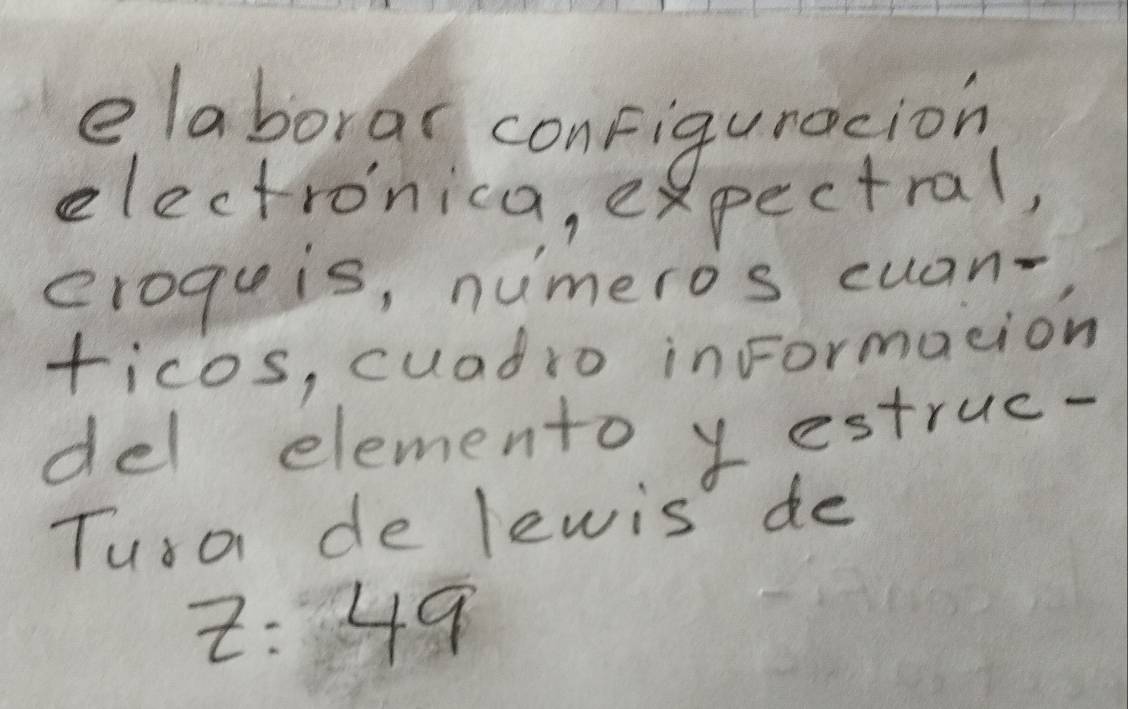 elaborar configuración
electrónica, expectral,
croquis, números cuan-
ticos, cuadro información
del elemento y estruc-
Tura de lewis de
Z: 49